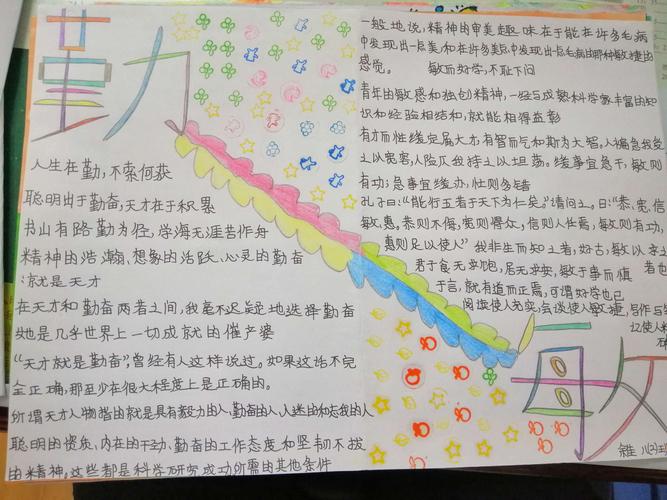 勤
人生在勤,不索何获
聪明出于勤奋,天才在于积累
书山有路勤为径,学海无涯苦作舟
精神的浩瀚、想象的活跃、心灵的勤奋
:就是天才
在天才和勤奋两者之间,我毫不迟疑地选择勤奋
她是几乎世界上一切成就的催产婆
“天才就是勤奋”,曾经有人这样说过。如果这话不完
全正确,那至少在很大程度上是正确的。
所谓天才人物指的就是具有毅力的人、勤奋的人、入迷的和忘我的人
聪明的资质、内在的干劲、勤奋的工作态度和坚韧不拔
的精神。这些都是科学研究成功所需的其他条件
一般地说,精神的审美趣味在于能在许多毛病
中发现出一点美和在许多美点中发现出一点毛病的那种敏捷的
感觉。 敏而好学,不耻下问
青年的敏感和独创精神,一经与成熟科学家丰富的知
识和经验相结和,就能相得益彰
有才而性缓定属大才有智而气和斯为大智,人褊急我受
之以宽宏人险仄我待之以坦荡。缓事宜急干,敏则
有功;急事宜缓办,忙则多错
孔子曰:“能行五者于天下为仁矣。”请问之。曰:“恭、宽、信
敏、惠。恭则不侮,宽则得众,信则人任焉,敏则有功,
惠则足以使人” 我非生而知之者,好古,敏以求之
者也
君子食无求饱,居无求安,敏于事而慎
于言,就有道而正焉,可谓好学也已
阅读使人充实,会谈使人敏捷,写作与笔
记使人精
敏